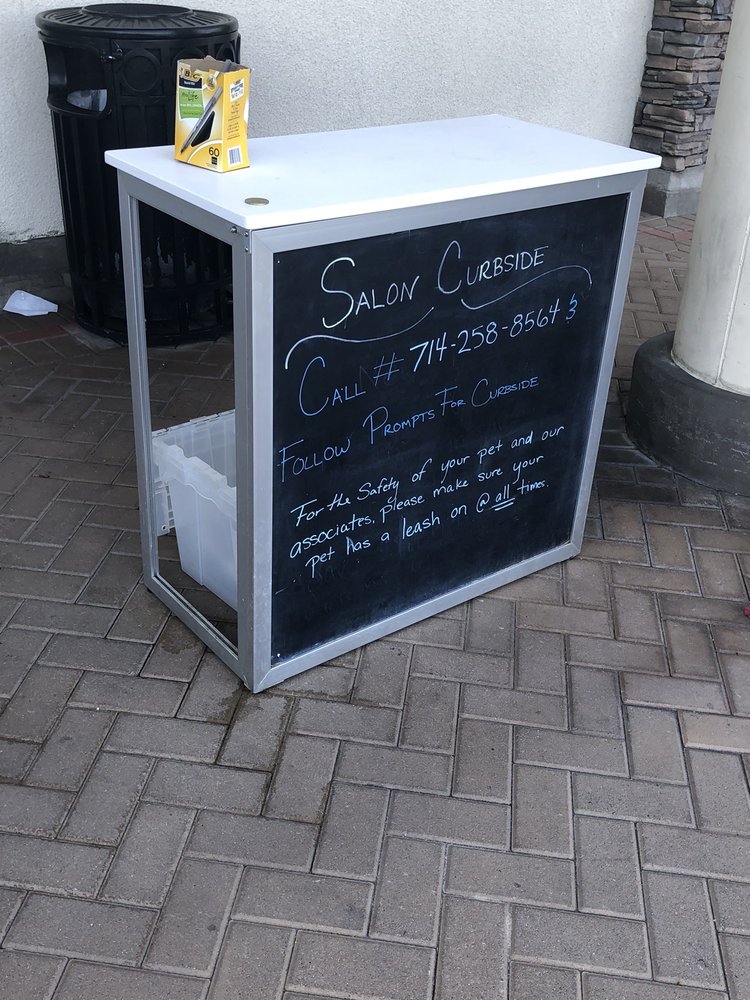 BIC
60
SALON CURBSIDE
CALL # 714-258-8564 3
FOLLOW PROMPTS FOR CURBSIDE
For the Safety of your pet and our
associates, please make sure your
pet has a leash on @ all times.